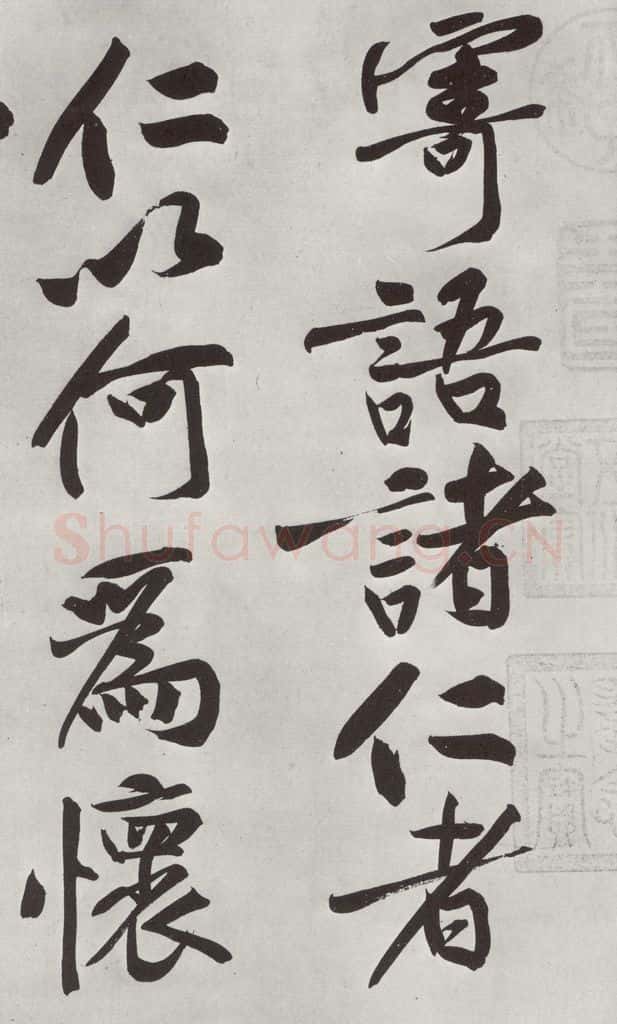 寄語諸仁者
仁以何為懷
Shufawang.CN